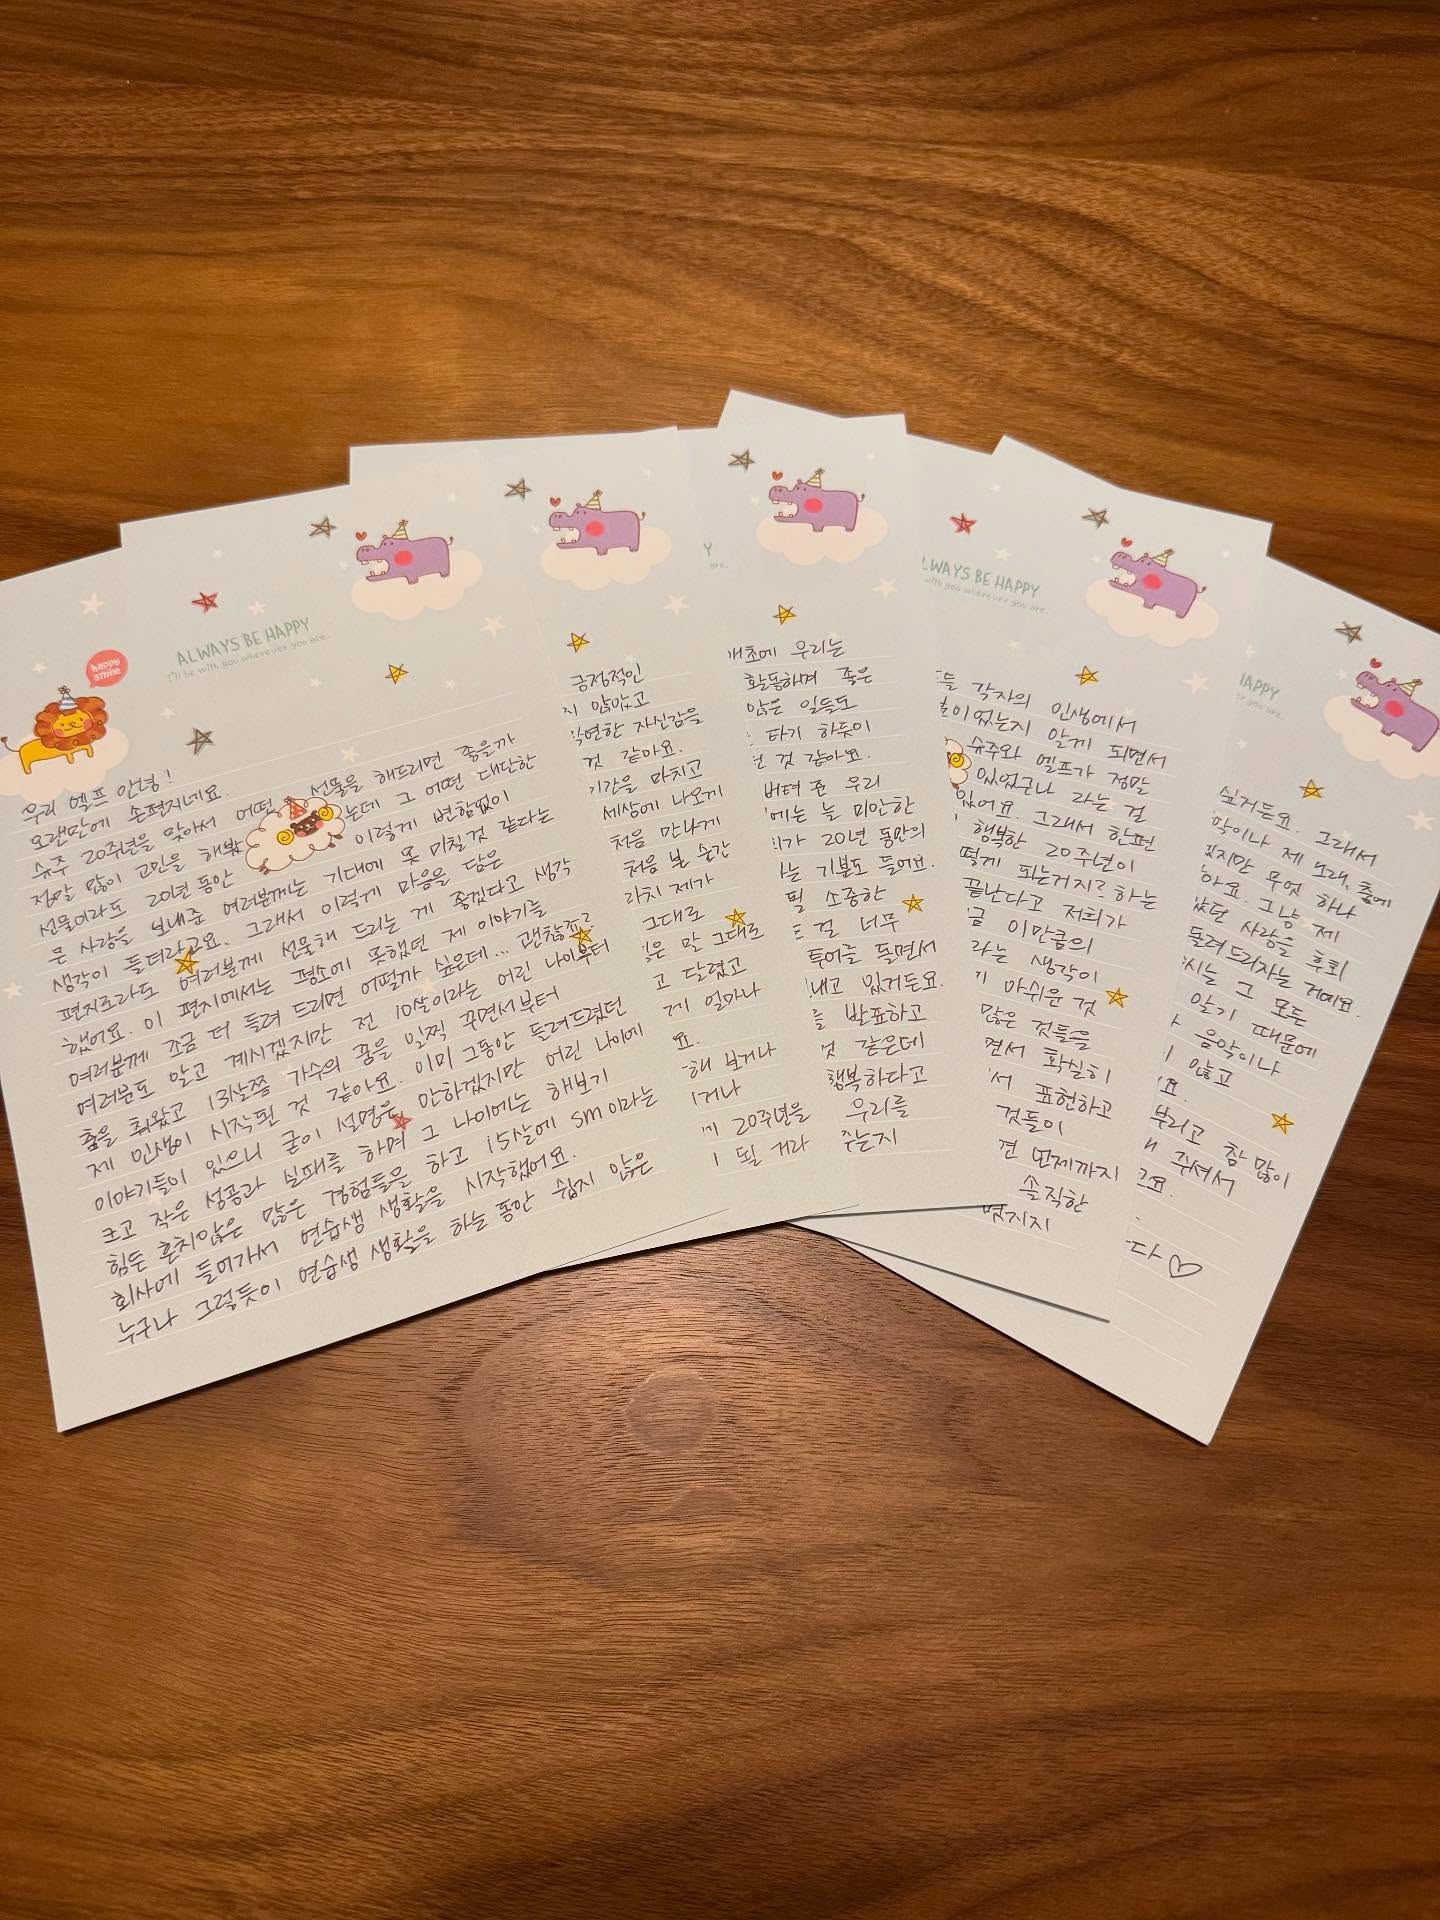 happy
smile
ALWAYS BE HAPPY
I'll be with you wherever you are.
우리 엘프 안녕!
오랜만에 손편지네요.
슈주 20주년을 맞아서 어떤 선물을 해드리면 좋을까
정말 많이 고민을 해봤는데 그 어떤 대단한
선물이라도 20년 동안 이렇게 변함없이
큰 사랑을 보내준 여러분께는 기대에 못 미칠 것 같다는
생각이 들더라고요. 그래서 이렇게 마음을 담은
편지로라도 여러분께 선물해 드리는 게 좋겠다고 생각
했어요. 이 편지에서는 평소에 못했던 제 이야기를
여러분께 조금 더 들려 드리면 어떨까 싶은데... 괜찮죠?
여러분도 알고 계시겠지만 전 10살이라는 어린 나이부터
춤을 춰왔고 13살쯤 가수의 꿈을 일찍 꾸면서부터
제 인생이 시작된 것 같아요. 이미 그동안 들려드렸던
이야기들이 있으니 굳이 설명은 안하겠지만 어린 나이에
크고 작은 성공과 실패를 하며 그 나이에는 해보기
힘든 흔치않은 많은 경험들을 하고 15살에 SM이라는
회사에 들어가서 연습생 생활을 시작했어요.
누구나 그렇듯이 연습생 생활을 하는 동안 쉽지 않은
긍정적인
지 않았고
막연한 자신감을
것 같아요.
기간을 마치고
세상에 나오게
처음 만나게
처음 본 순간
라치 제가
그대로
은 말 그대로
고 달렸고
게 얼마나
요.
해 보거나
거나
20주년을
될 거라
애초에 우리는
활동하며 좋은
않은 일들도
타기 하듯이
것 같아요.
버텨 준 우리
에는 늘 미안한
가 20년 동안의
는 기분도 들어요.
될 소중한
걸 너무
투어를 돌면서
내고 있거든요.
를 발표하고
것 같은데
행복하다고
우리를
주는지
ALWAYS BE HAPPY
with you wherever you are.
들 각자의 인생에서
이었는지 알게 되면서
슈주와 엘프가 정말
있었구나 라는 걸
있어요. 그래서 한편
행복한 20주년이
떻게 되는거지? 하는
끝난다고 저희가
금 이만큼의
라는 생각이
아쉬운 것
많은 것들을
면서 확실히
서 표현하고
것들이
견 번째까지
솔직한
었지지
HAPPY
er you are.
싶거든요. 그래서
악이나 제 노래, 춤에
있지만 무엇 하나
아요. 그냥 제
았던 사랑을 후회
들려 드리자는 거예요.
시는 그 모든
알기 때문에
음악이나
않고
요.
부리고 참 많이
주셔서
고요.
다♡